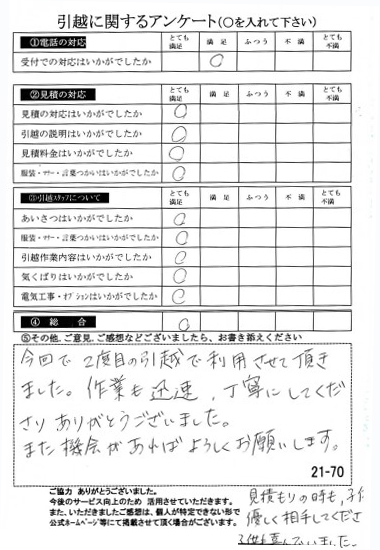 引越に関するアンケート(○を入れて下さい)
①電話の対応 とても満足 満足 ふつう 不満 とても不満
受付での対応はいかがでしたか ○
②見積の対応 とても満足 満足 ふつう 不満 とても不満
見積の対応はいかがでしたか ○
引越の説明はいかがでしたか ○
見積料金はいかがでしたか ○
服装・マナー・言葉つかいはいかがでしたか ○
③引越スタッフについて とても満足 満足 ふつう 不満 とても不満
あいさつはいかがでしたか ○
服装・マナー・言葉つかいはいかがでしたか ○
引越作業内容はいかがでしたか ○
気くばりはいかがでしたか ○
電気工事・オプションはいかがでしたか ○
④総合 ○
⑤その他、ご意見、ご感想などございましたら、お書き添えください
今回で2度目の引越で利用させて頂き
ました。作業も迅速、丁寧にしてくだ
さりありがとうございました。
また機会があればよろしくお願いします。
21-70
ご協力 ありがとうございました。
今後のサービス向上のため 活用させていただきます。
また、いただきましたご感想は、個人が特定できない形で
公式ホームページ等にて掲載させて頂く場合がございます。
見積もりの時も、子供
優しく相手してくださ
子供も喜んでいました。